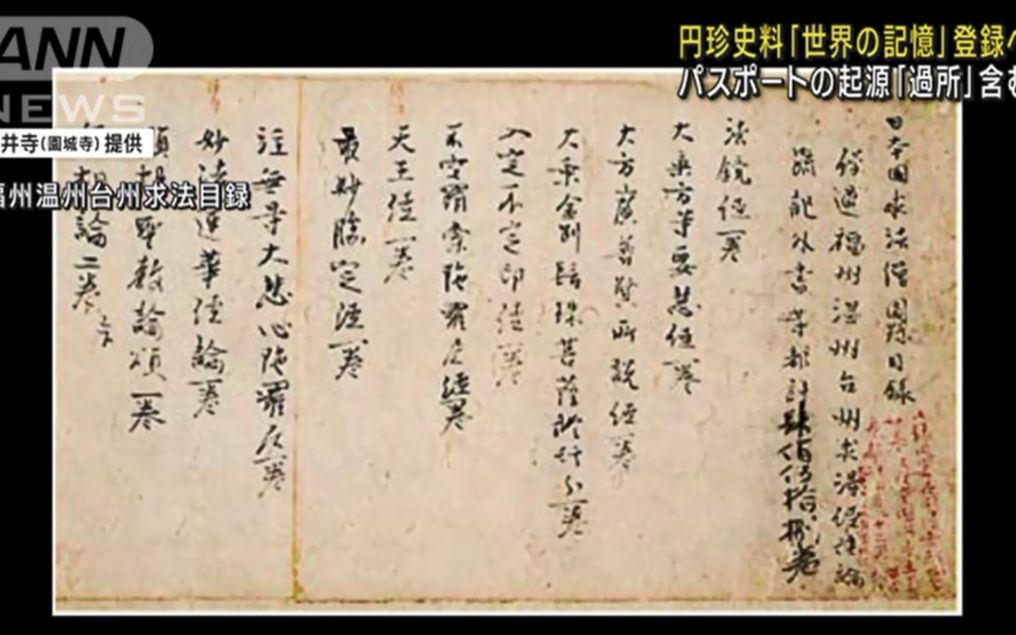 ANN
NEWS
円珍史料「世界の記憶」登録へ
パスポートの起源「過所」含む
井寺(園城寺)提供
福州温州台州求法目録
日本國求法僧圓珍目録
俗過福州温州台州求得經律論
疏記外書等都計肆佰伍拾捌卷
法鏡經一卷
大乘方等要慧經一卷
大方廣普賢所説經一卷
大乘金剛髻珠菩薩修行分一卷
入定不定印經一卷
不空羂索陀羅尼經一卷
天王經一卷
最妙勝定經一卷
注無导大悲心陀羅尼一卷
妙法蓮華經論一卷
顯揚聖教論頌一卷
論二卷